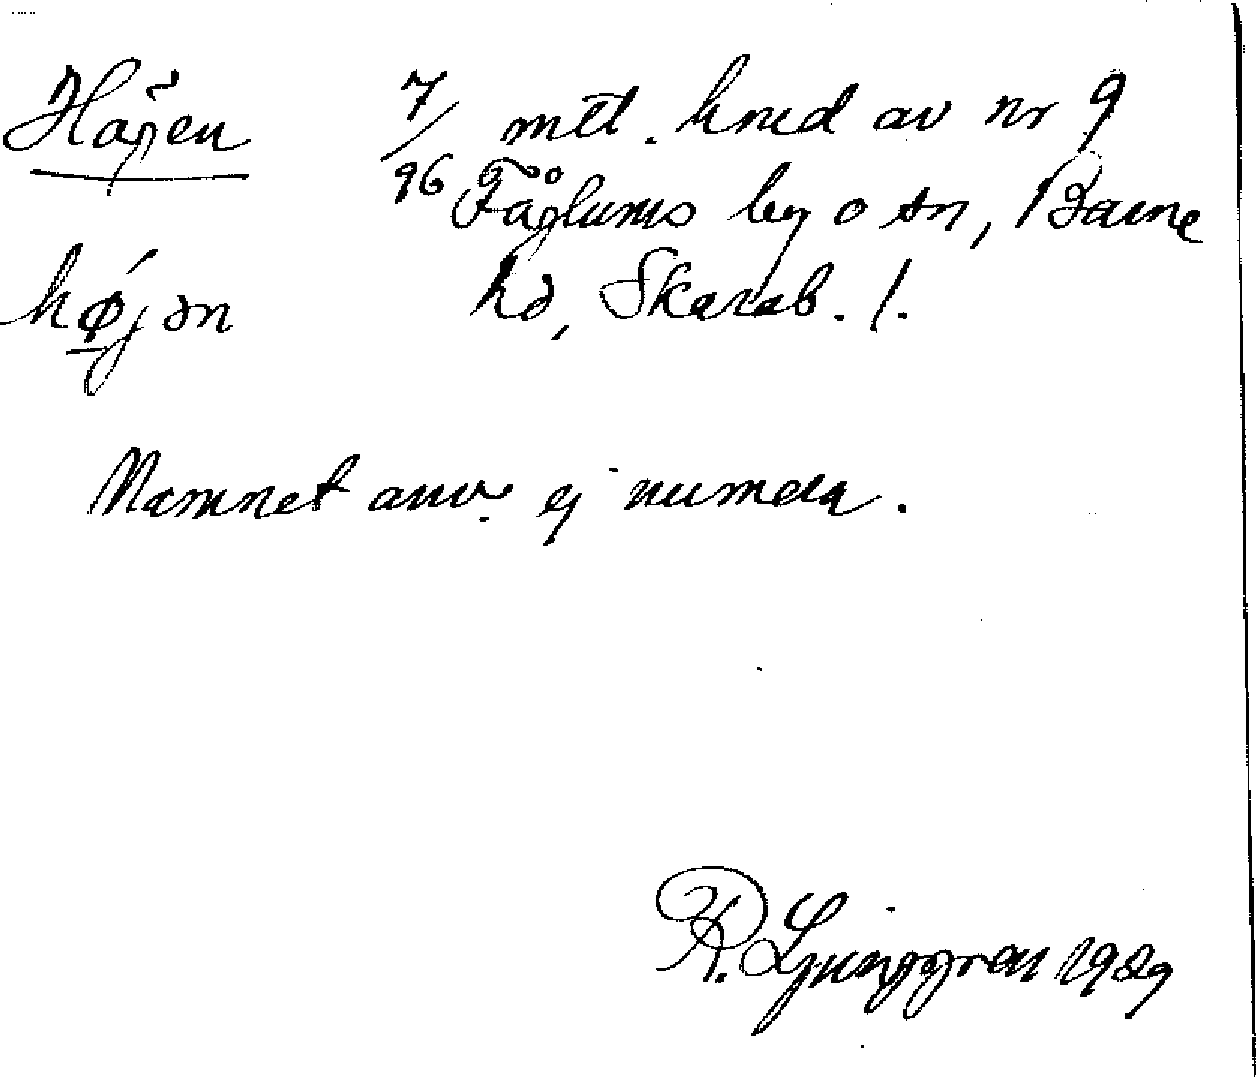 Hagen 7/96 mtl. hmd av nr 9
Fåglums by o sn, Barne
højən hd, Skarab. l.
Namnet anv. ej numera.
R. Ljunggren 1929